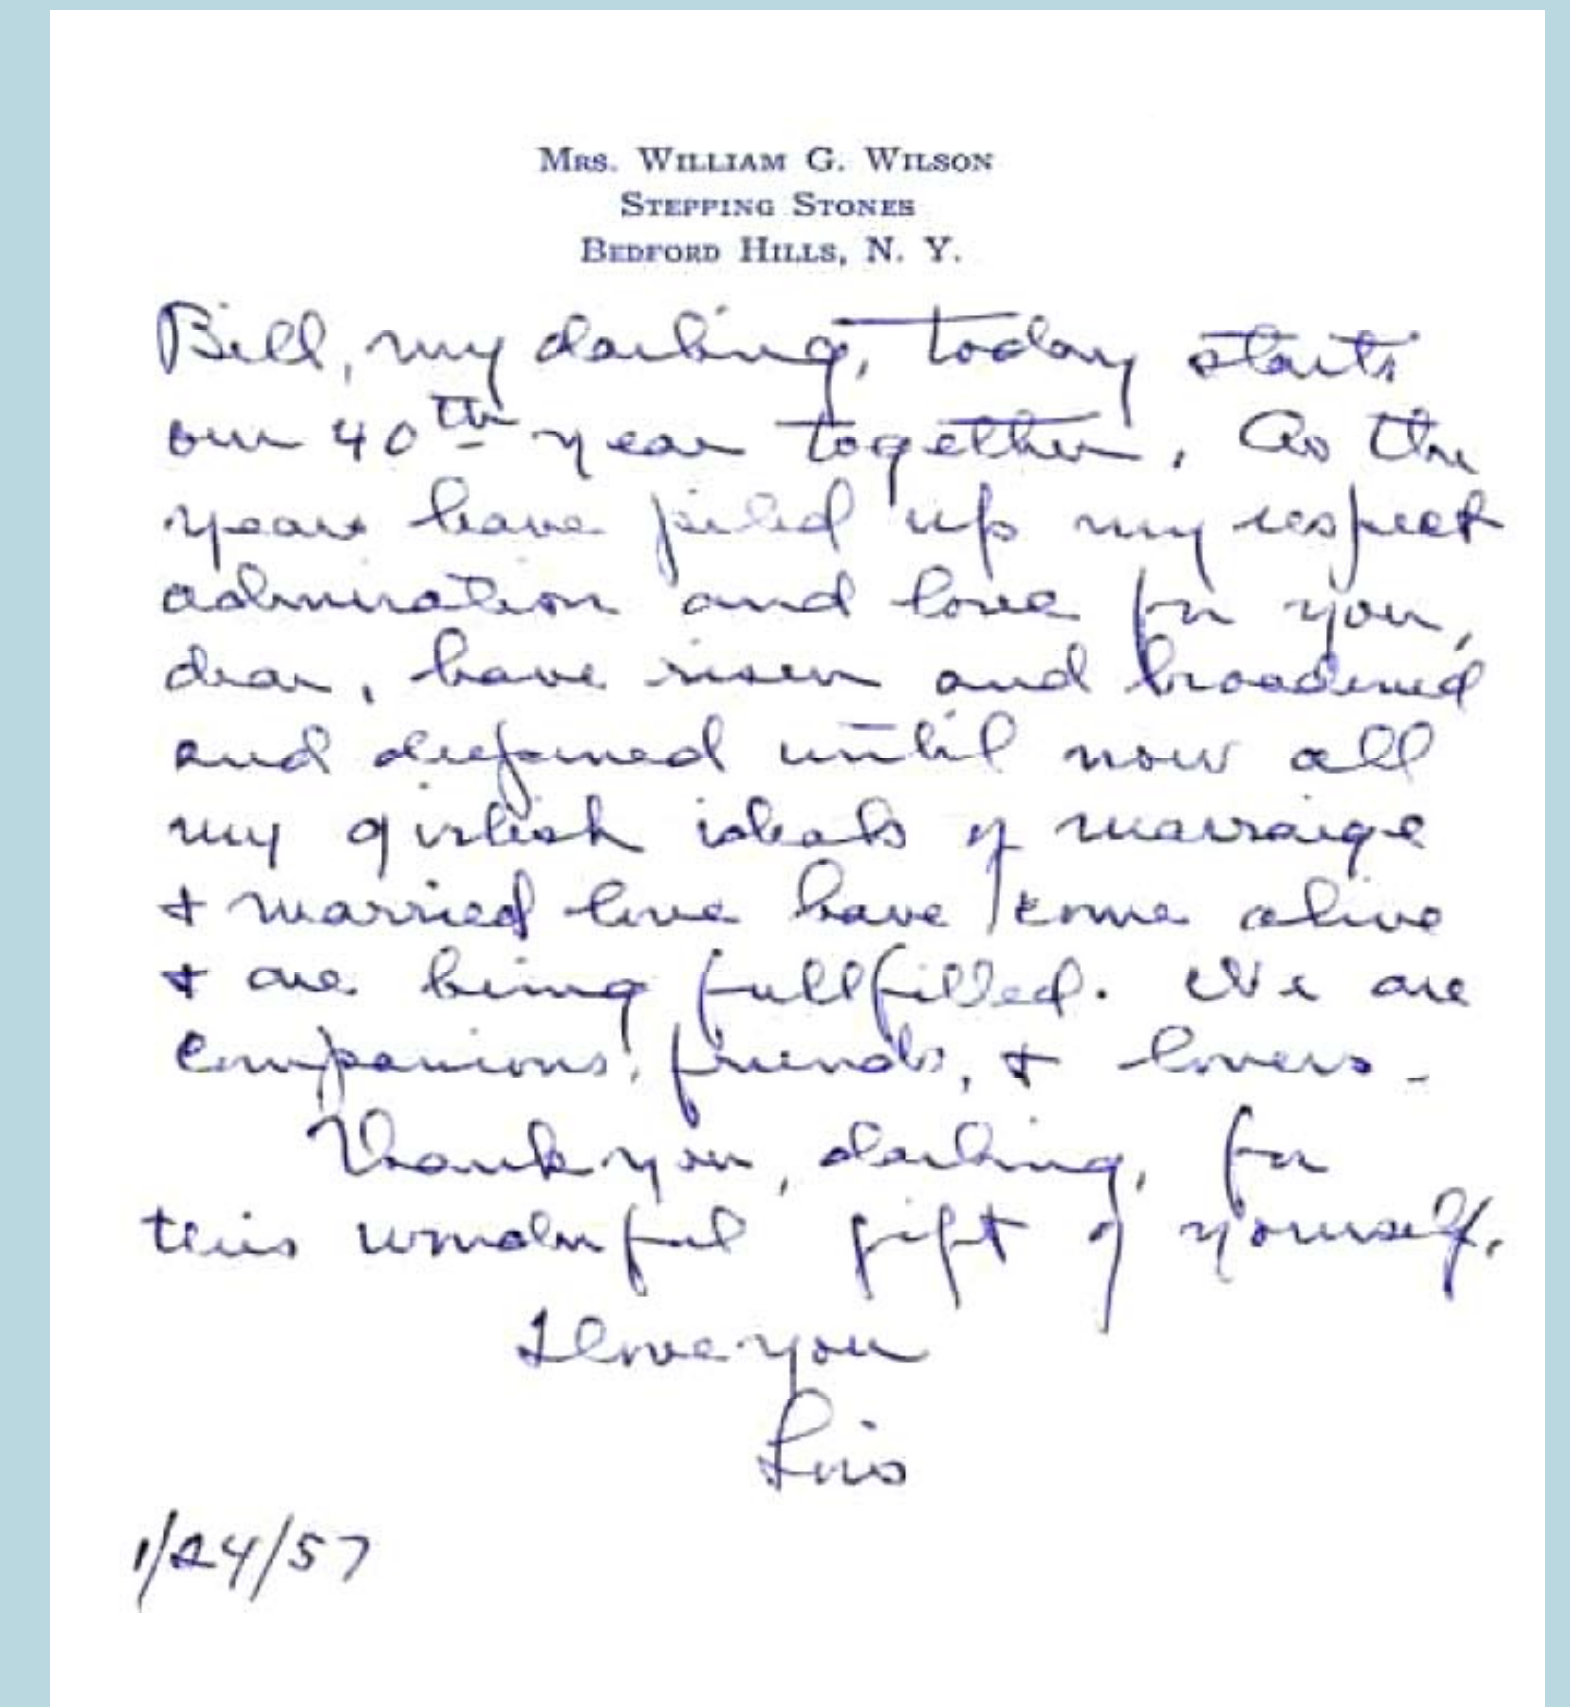 MRS. WILLIAM G. WILSON
STEPPING STONES
BEDFORD HILLS, N. Y.
Bill, my darling, today starts
our 40th year together. As the
years have piled up my respect
admiration and love for you,
dear, have risen and broadened
and deepened until now all
my girlish ideals of marraige
+ married love have come alive
+ are being fullfilled. We are
companions, friends, + lovers -
Thank you, darling, for
this wonderful gift of yourself.
I love you
Lois
1/24/57